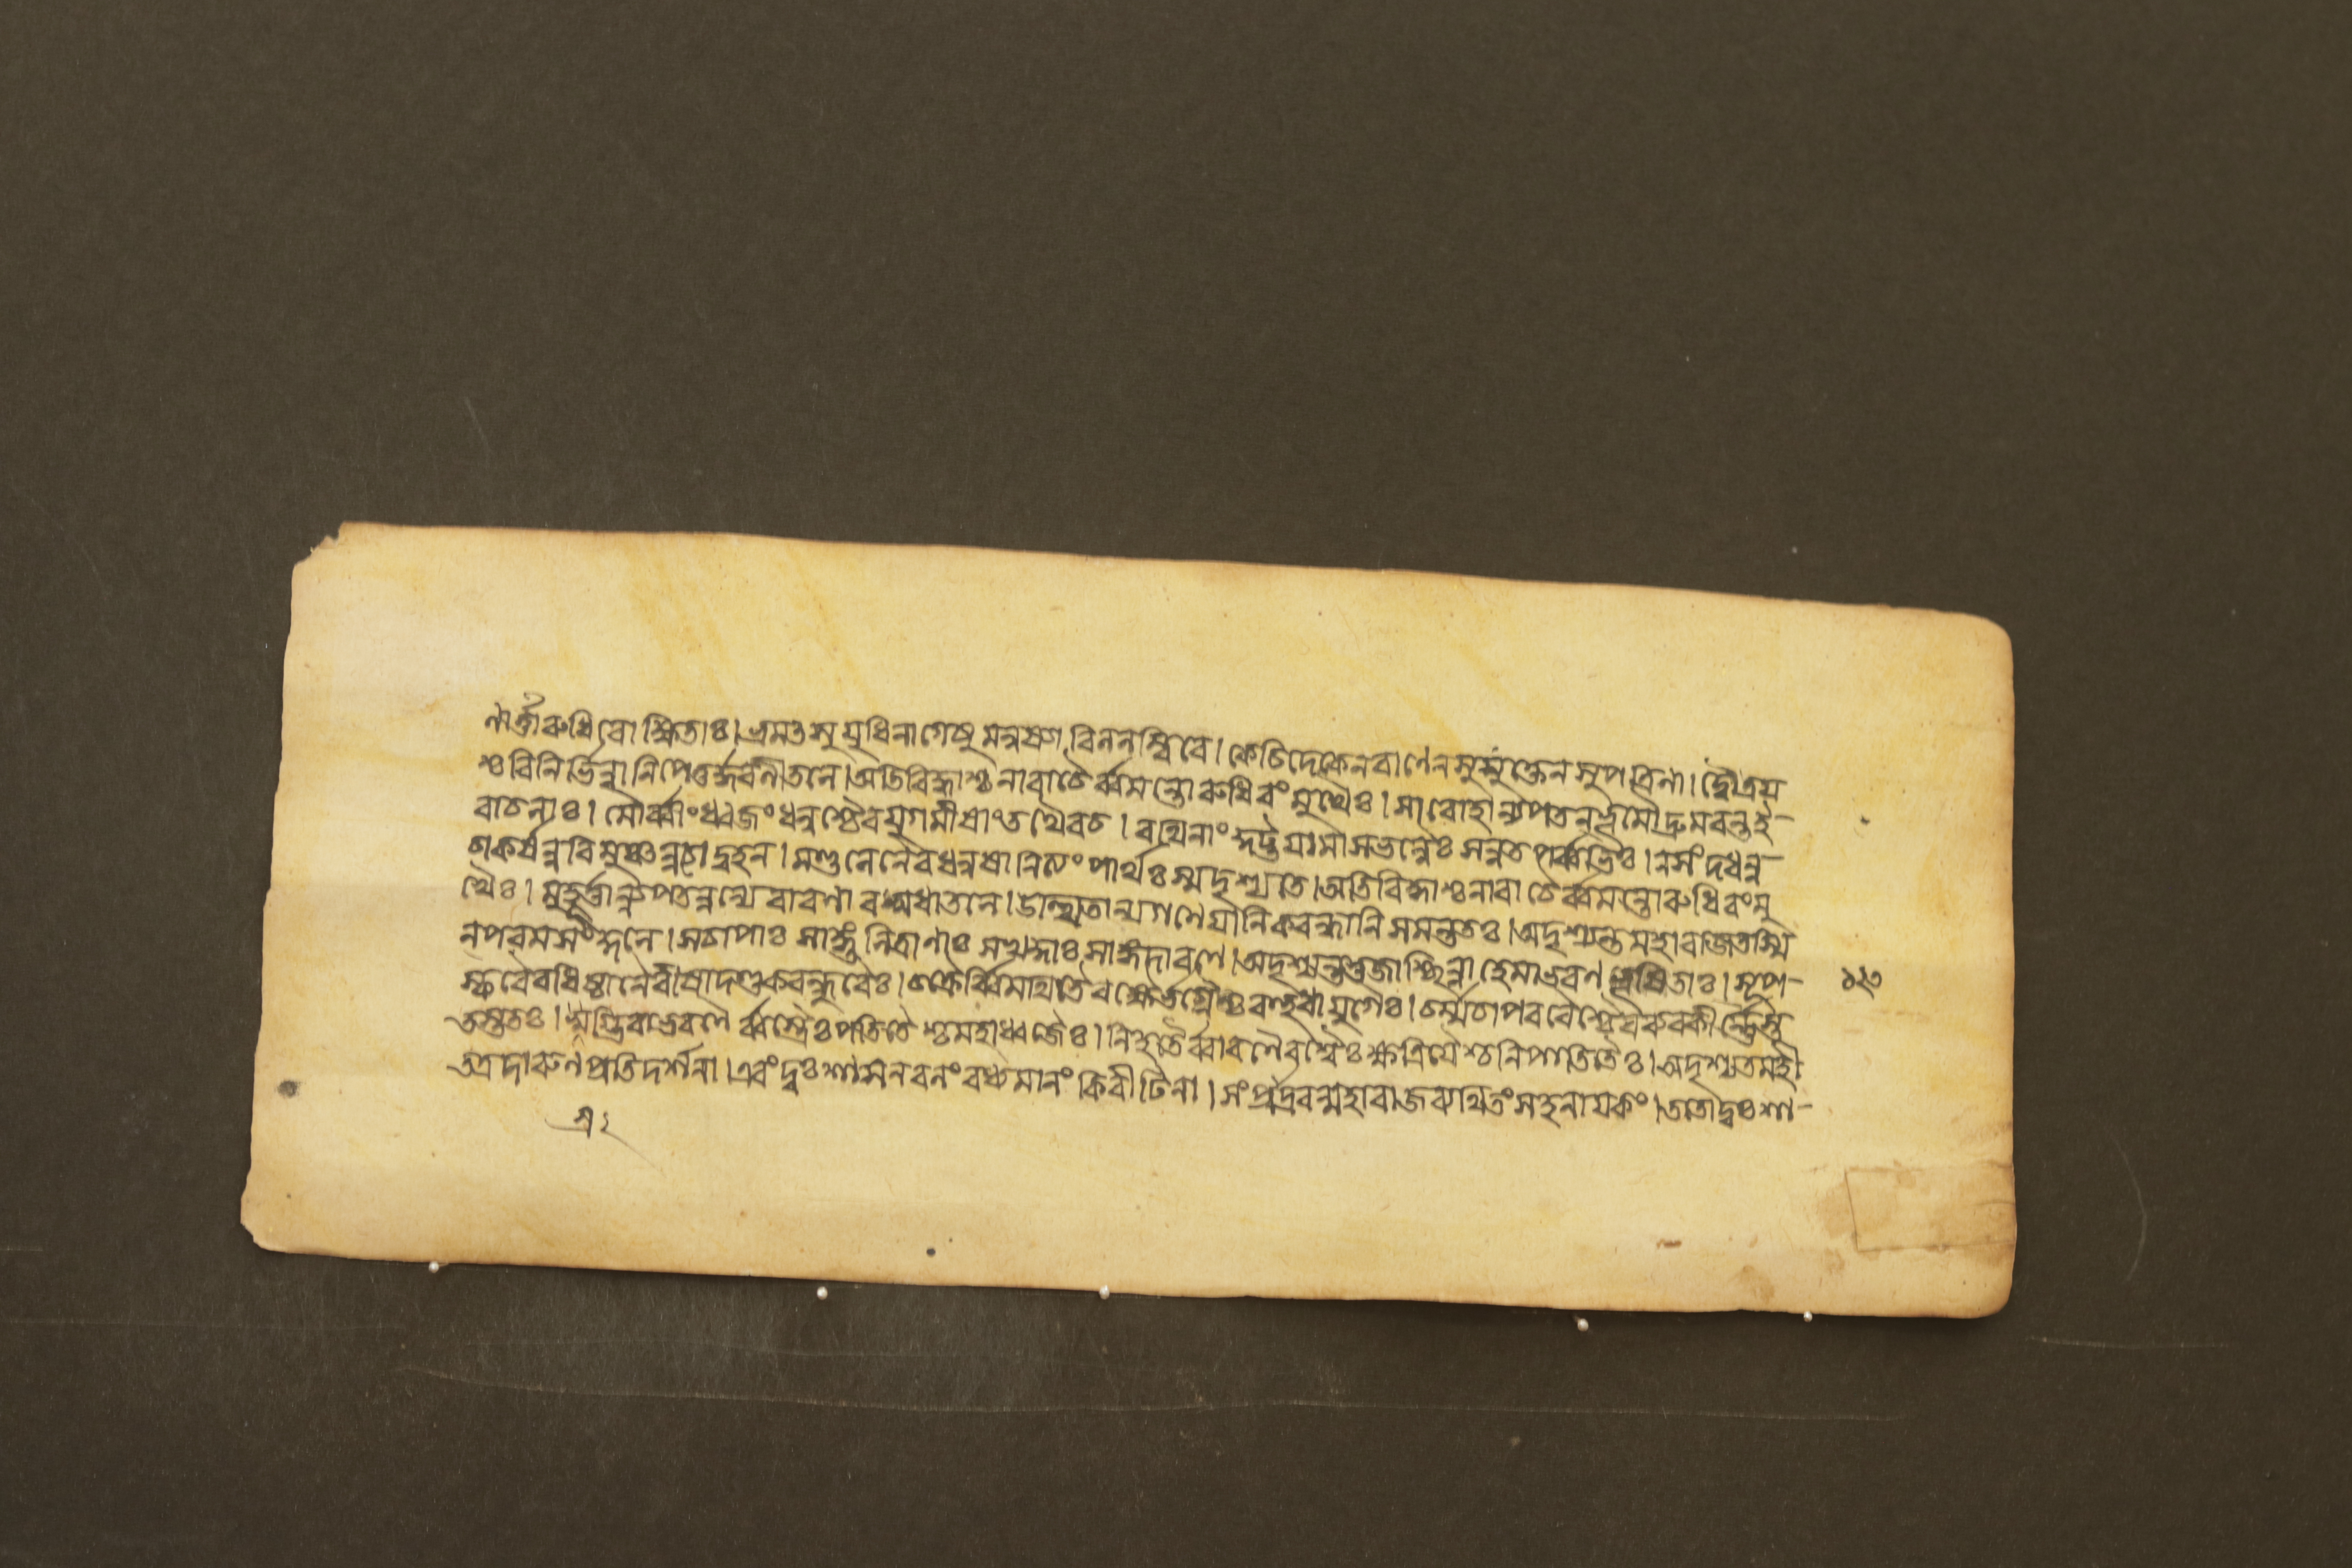 ণার্ত্তারুধিরোক্ষিতাঃ।ভ্রমৎসুযুধিনাগেষুমনুষ্যাবিননম্বিরে।কেচিদেকেনবাণেনসুমুক্তেনসুপত্রিনা।দ্বৌত্রয়
শ্চবিনির্ভিন্নানিপেতুর্দ্ধরনীতলে।অতিবিদ্ধাশ্চনারাচৈর্ব্বমন্তোরুধিরংমুখৈঃ।সারোহান্যপতনভূমৌদ্রুমবন্তই-
বাচলাঃ।মৌর্ব্বীংধ্বজংধনুশ্চৈবযুগমীষাংতথৈবচ।রথিনাংকুট্টয়ামাসভল্লৈঃসন্নতপর্ব্বভিঃ।নসংদধন্ন-
চকর্ষন্নবিমুঞ্চন্নচোদ্বহন।মণ্ডলেনৈবধনুষানিত্যংপার্থঃস্মদৃশ্যতে।অতিবিদ্ধাশ্চনারাচৈর্ব্বমন্তোরুধিরংমু
খৈঃ।মুহূর্ত্তান্নিপতন্নন্যেবারণাবসুধাতলে।উত্থিতান্যগণেয়ানিকবন্ধানিসমন্ততঃ।অদৃশ্যন্তমহারাজতস্মি
নপরমসংকুলে।সচাপাঃসাঙ্গুলিত্রাণাঃসখড়্গাঃসাঙ্গদারণে।অদৃশ্যন্তভুজাশ্ছিন্নাহেমাভরণভূষিতাঃ।সূপ-
স্করৈরধিষ্ঠানৈরীষাদণ্ডকবন্ধুরৈঃ।চক্রৈর্ব্বিমথিতৈরক্ষৈর্ভগ্নৈশ্চবহুধাযুগৈঃ।চর্ম্মচাপধরৈশ্চৈবব্যবকীর্ণৈস্ত
তস্ততঃ।স্রগ্ভিরাভরণৈর্ব্বস্ত্রৈঃপতিতৈশ্চমহাধ্বজৈঃ।নিহতৈর্ব্বারণৈরশ্বৈঃক্ষত্রিয়ৈশ্চনিপাতিতৈঃ।অদৃশ্যতমহী
তত্রদারুণপ্রতিদর্শনা।এবংদুঃশাসনবলংবধ্যমানংকিরীটিনা।সংপ্রাদ্রবন্মহারাজব্যথিতংসহনায়কং।ততোদুঃশা-